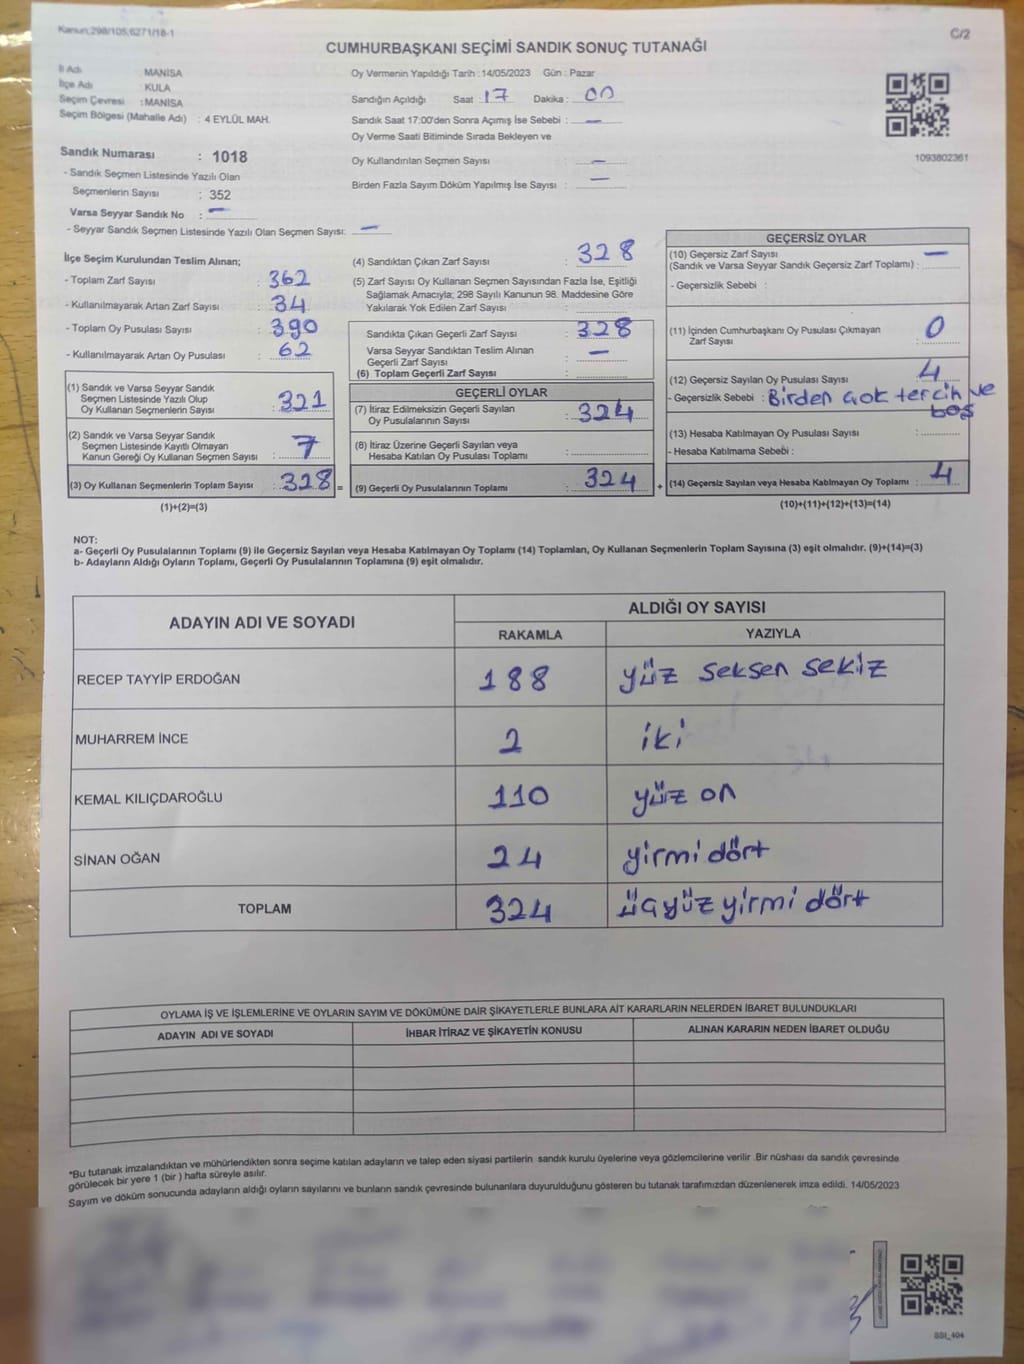 Kanun;298/105,6271/18-1
C/2
CUMHURBAŞKANI SEÇİMİ SANDIK SONUÇ TUTANAĞI
İl Adı : MANİSA
İlçe Adı : KULA
Seçim Çevresi : MANİSA
Seçim Bölgesi (Mahalle Adı) : 4 EYLÜL MAH.
Oy Vermenin Yapıldığı Tarih : 14/05/2023 Gün : Pazar
Sandığın Açıldığı Saat : 17 Dakika : 00
Sandık Saat 17:00'den Sonra Açımış İse Sebebi : —
Oy Verme Saati Bitiminde Sırada Bekleyen ve
Oy Kullandırılan Seçmen Sayısı : —
Birden Fazla Sayım Döküm Yapılmış İse Sayısı : —
1093802361
Sandık Numarası : 1018
- Sandık Seçmen Listesinde Yazılı Olan
Seçmenlerin Sayısı : 352
Varsa Seyyar Sandık No : —
- Seyyar Sandık Seçmen Listesinde Yazılı Olan Seçmen Sayısı: —
İlçe Seçim Kurulundan Teslim Alınan;
- Toplam Zarf Sayısı : 362
- Kullanılmayarak Artan Zarf Sayısı : 34
- Toplam Oy Pusulası Sayısı : 390
- Kullanılmayarak Artan Oy Pusulası : 62
(1) Sandık ve Varsa Seyyar Sandık
Seçmen Listesinde Yazılı Olup
Oy Kullanan Seçmenlerin Sayısı : 321
(2) Sandık ve Varsa Seyyar Sandık
Seçmen Listesinde Kayıtlı Olmayan
Kanun Gereği Oy Kullanan Seçmen Sayısı : 7
(3) Oy Kullanan Seçmenlerin Toplam Sayısı : 328 =
(1)+(2)=(3)
(4) Sandıktan Çıkan Zarf Sayısı : 328
(5) Zarf Sayısı Oy Kullanan Seçmen Sayısından Fazla İse, Eşitliği
Sağlamak Amacıyla; 298 Sayılı Kanunun 98. Maddesine Göre
Yakılarak Yok Edilen Zarf Sayısı :
Sandıkta Çıkan Geçerli Zarf Sayısı : 328
Varsa Seyyar Sandıktan Teslim Alınan
Geçerli Zarf Sayısı : —
(6) Toplam Geçerli Zarf Sayısı :
GEÇERLİ OYLAR
(7) İtiraz Edilmeksizin Geçerli Sayılan
Oy Pusulalarının Sayısı : 324
(8) İtiraz Üzerine Geçerli Sayılan veya
Hesaba Katılan Oy Pusulası Toplamı :
(9) Geçerli Oy Pusulalarının Toplamı : 324 +
GEÇERSİZ OYLAR
(10) Geçersiz Zarf Sayısı
(Sandık ve Varsa Seyyar Sandık Geçersiz Zarf Toplamı) : —
- Geçersizlik Sebebi :
(11) İçinden Cumhurbaşkanı Oy Pusulası Çıkmayan
Zarf Sayısı : 0
(12) Geçersiz Sayılan Oy Pusulası Sayısı : 4
- Geçersizlik Sebebi : Birden çok tercih ve
boş
(13) Hesaba Katılmayan Oy Pusulası Sayısı :
- Hesaba Katılmama Sebebi :
(14) Geçersiz Sayılan veya Hesaba Katılmayan Oy Toplamı : 4
(10)+(11)+(12)+(13)=(14)
NOT:
a- Geçerli Oy Pusulalarının Toplamı (9) ile Geçersiz Sayılan veya Hesaba Katılmayan Oy Toplamı (14) Toplamları, Oy Kullanan Seçmenlerin Toplam Sayısına (3) eşit olmalıdır. (9)+(14)=(3)
b- Adayların Aldığı Oyların Toplamı, Geçerli Oy Pusulalarının Toplamına (9) eşit olmalıdır.
ADAYIN ADI VE SOYADI ALDIĞI OY SAYISI
RAKAMLA YAZIYLA
RECEP TAYYİP ERDOĞAN 188 yüz seksen sekiz
MUHARREM İNCE 2 iki
KEMAL KILIÇDAROĞLU 110 yüz on
SİNAN OĞAN 24 yirmi dört
TOPLAM 324 üçyüz yirmi dört
OYLAMA İŞ VE İŞLEMLERİNE VE OYLARIN SAYIM VE DÖKÜMÜNE DAİR ŞİKAYETLERLE BUNLARA AİT KARARLARIN NELERDEN İBARET BULUNDUKLARI
ADAYIN ADI VE SOYADI İHBAR İTİRAZ VE ŞİKAYETİN KONUSU ALINAN KARARIN NEDEN İBARET OLDUĞU
*Bu tutanak imzalandıktan ve mühürlendikten sonra seçime katılan adayların ve talep eden siyasi partilerin sandık kurulu üyelerine veya gözlemcilerine verilir .Bir nüshası da sandık çevresinde
görülecek bir yere 1 (bir ) hafta süreyle asılır.
Sayım ve döküm sonucunda adayların aldığı oyların sayılarını ve bunların sandık çevresinde bulunanlara duyurulduğunu gösteren bu tutanak tarafımızdan düzenlenerek imza edildi. 14/05/2023
SSI_404